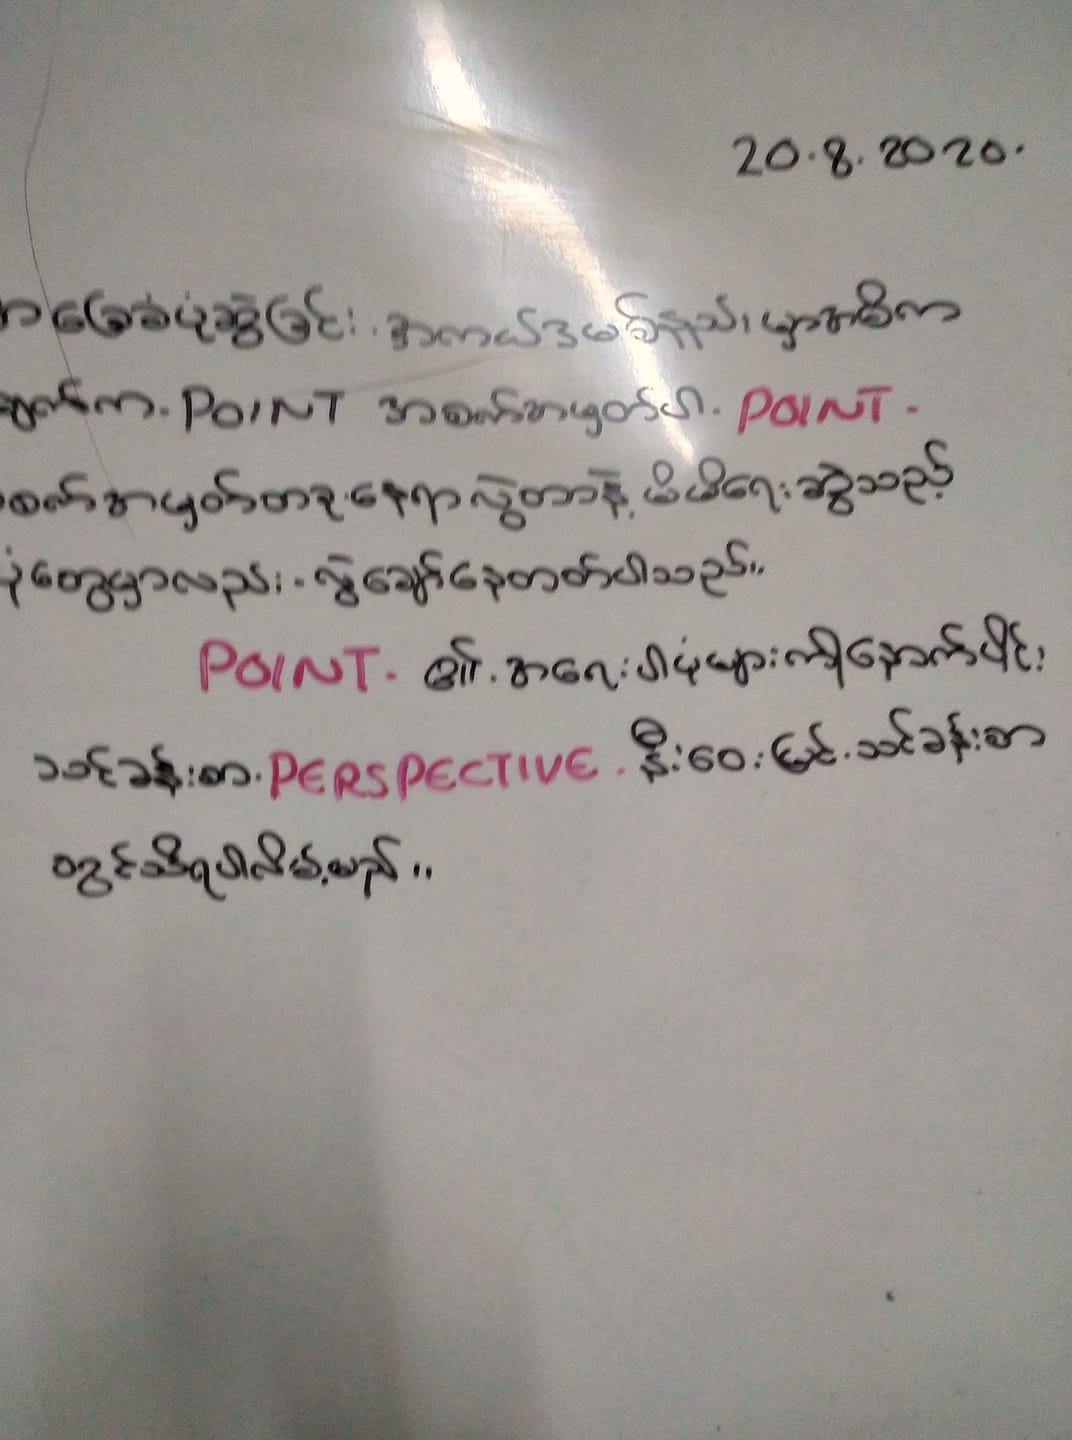 20.8.2020.
အခြေခံပုံဆွဲခြင်း. အကယ်ဒမစ်နည်း မှာအဓိက
ချက်က. POINT အစက်အမှတ်ပါ. POINT.
အစက်အမှတ်တခု နေရာလွဲတာနဲ့ မိမိရေးဆွဲသည့်
ပုံတွေမှာလည်း. လွဲချော်နေတတ်ပါသည်။
POINT. ၏. အရေးပါပုံများကိုနောက်ပိုင်း
သင်ခန်းစာ. PERSPECTIVE. နီးဝေးမြင်. သင်ခန်းစာ
တွင်သိရပါလိမ့်မည်။